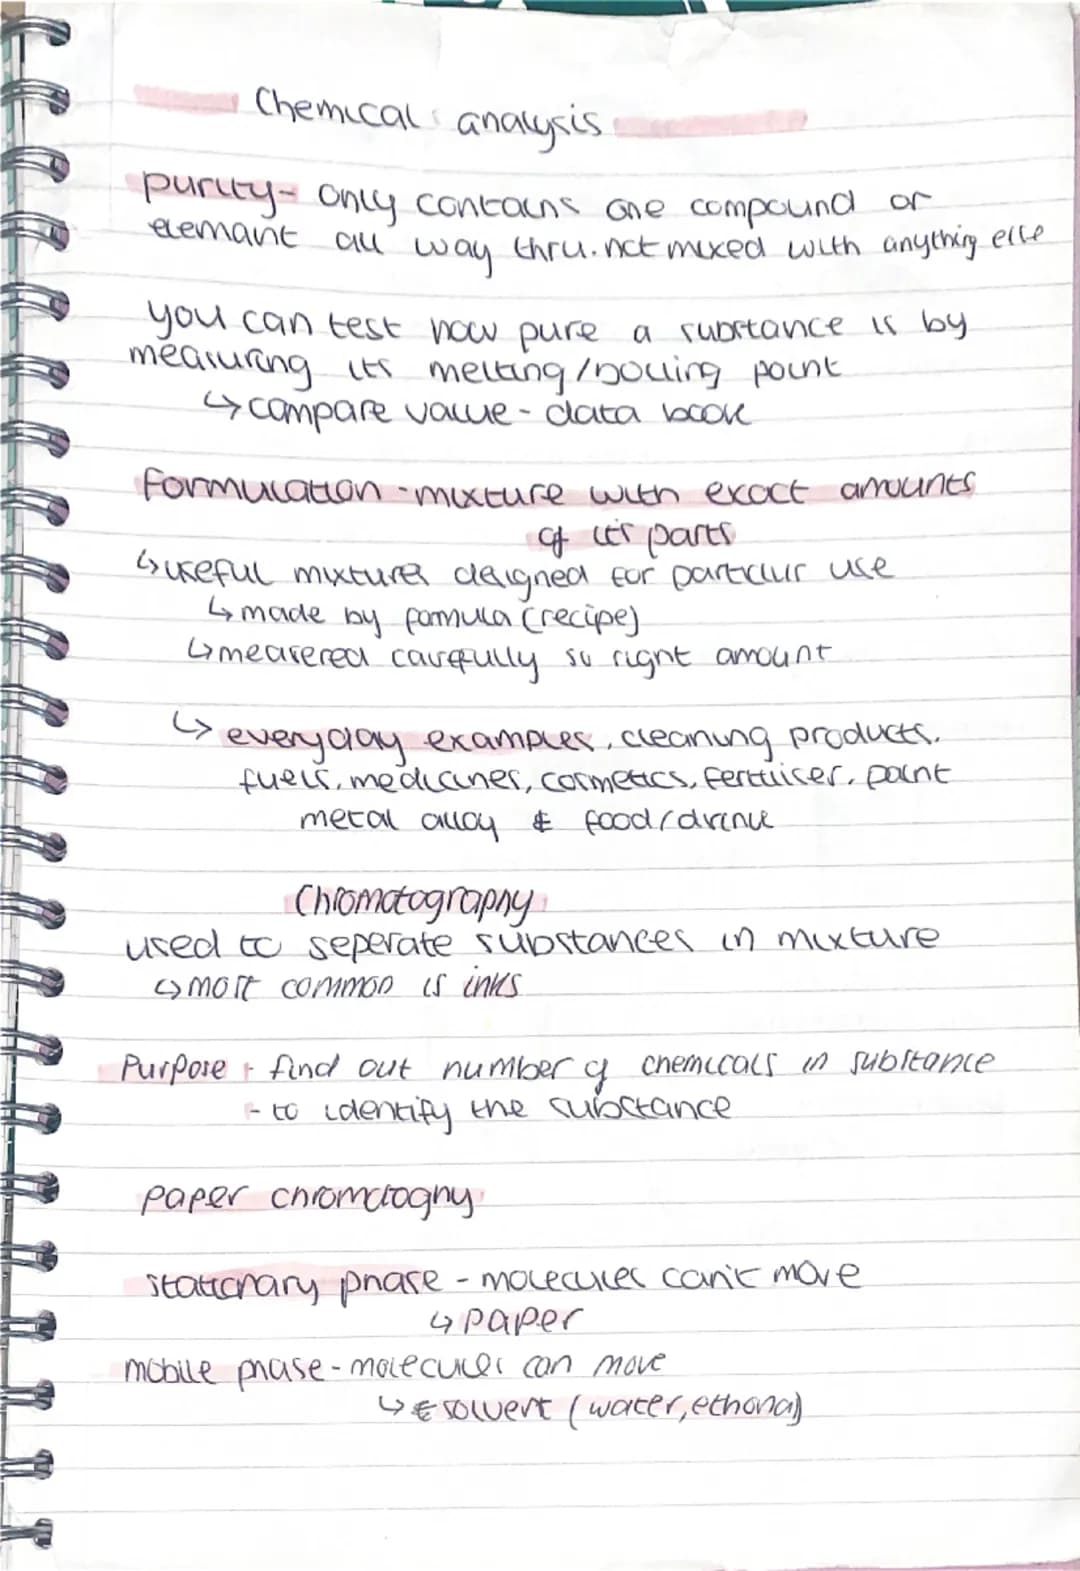 Chemical analysis
purity- only contains one compound or
elemant all way thru. not mixed with anything else
you can test how pure a substance is by
measuring its melting/boiling point
↳ compare value - data book
formulation - mixture with exact amounts
of it's parts
↳ useful mixtures designed for particlur use
↳ made by formula (recipe)
↳ mearered carefully so right amount
↳ everyday examples, cleaning products,
fuels, medicines, cosmetics, fertiliser, paint
metal alloy & food/drink
Chromatography
used to seperate substances in mixture
↳ most common is inks
Purpose - find out number of chemicals in substance
- to identify the substance
paper chromatogny
stationary phase - molecules can't move
↳ paper
mobile phase - molecules can move
↳ solvent (water, ethanal)